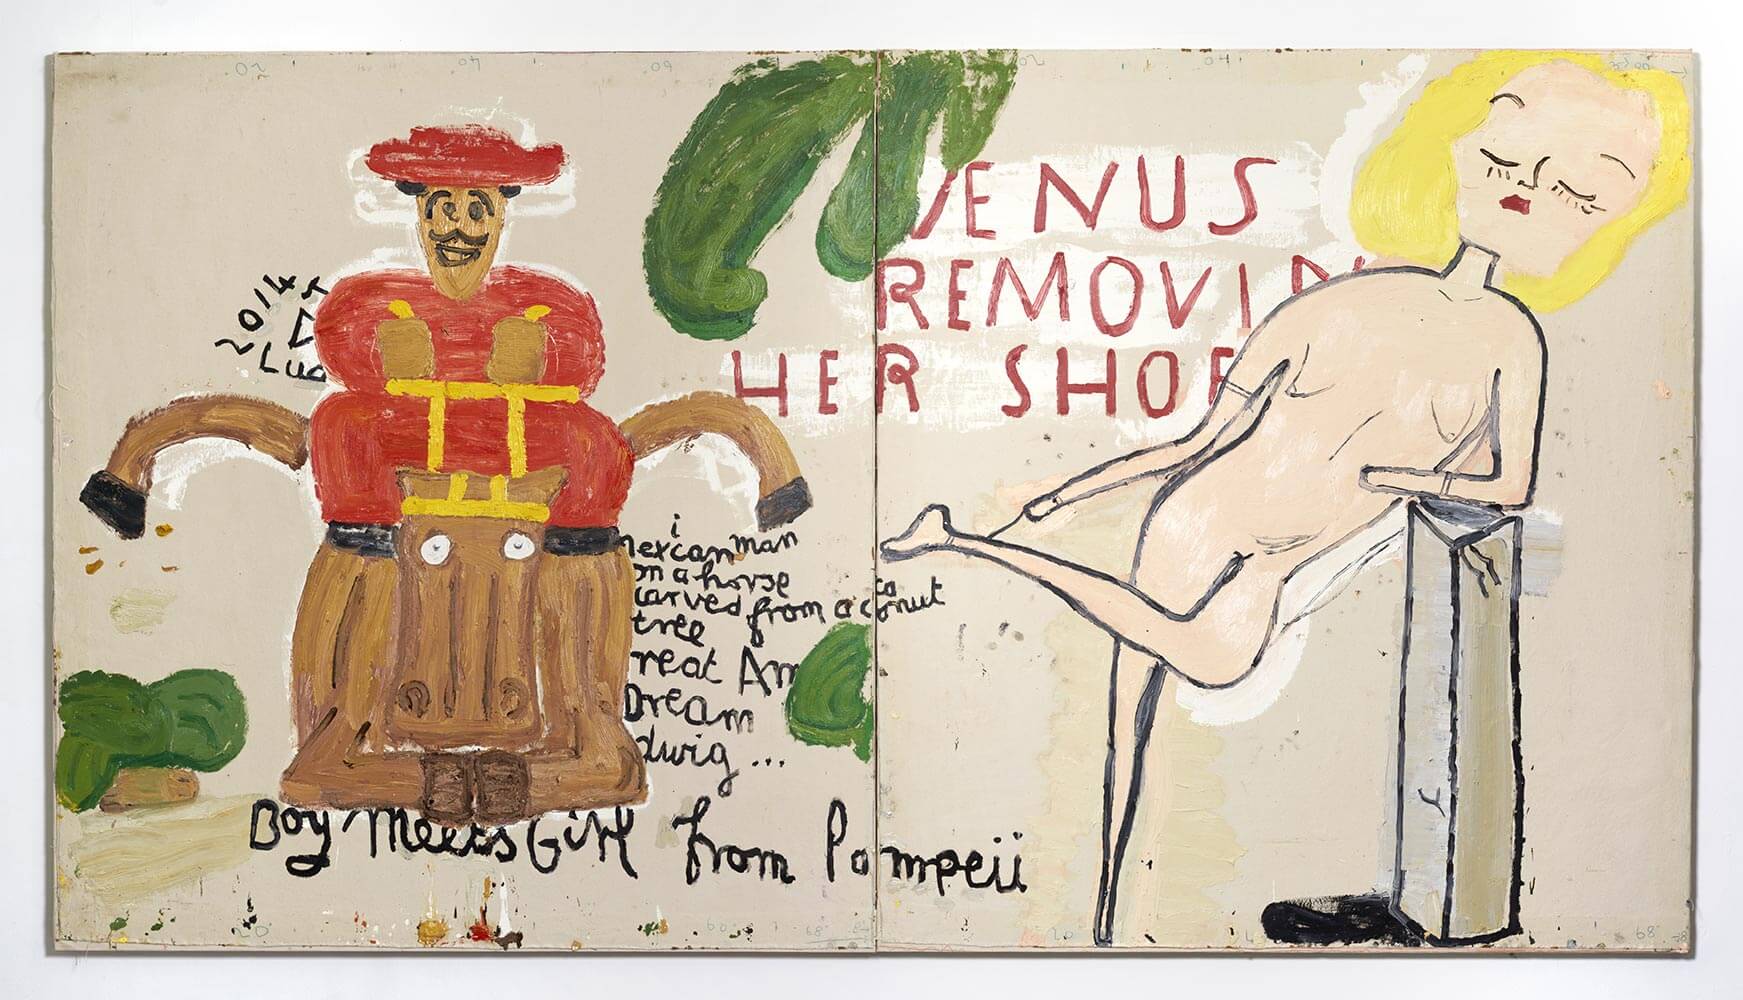 VENUS
REMOVIN
HER SHOE
2014
Lud
i
mexican man
on a horse
carved from a coconut
tree
reat Am
Dream
dwig ...
Boy Meets Girl from Pompeii